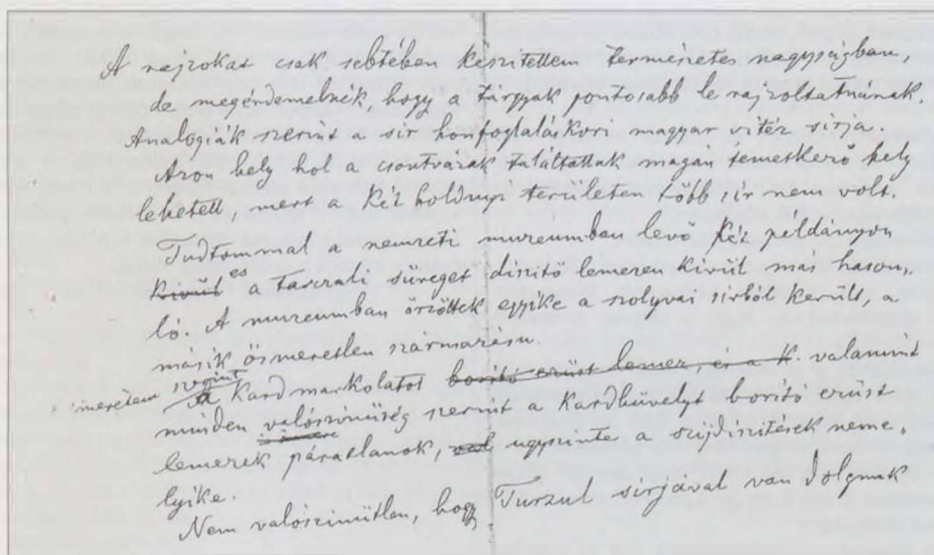 A rajzokat csak sebtében készitettem természetes nagyságban,
de megérdemelnék, hogy a tárgyak pontosabb le rajzoltatnának.
Analogiák szerint a sír honfoglaláskori magyar vitéz sirja.
Azon hely hol a csontvázak találtattak magán temetkező hely
lehetett, mert a két holdnyi területen több sir nem volt.
Tudtommal a nemzeti muzeumban levő két példányon
kivül és a tarczali süveget diszitő lemezen kivül más hason„
ló. A muzeumban őrzöttek egyike a szolyvai sirból került, a
másik ösmeretlen származásu.
ismeretem szerint
A Kardmarkolatot boritó ezüst lemez, és a K. valamint
minden valószinüség szerint a Kardhüvelyt boritó ezüst
lemezek páratlanok, ugyszinte a szijdiszitések neme„
lyike.
Nem valószinütlen, hogy Turzul sirjával van dolgunk